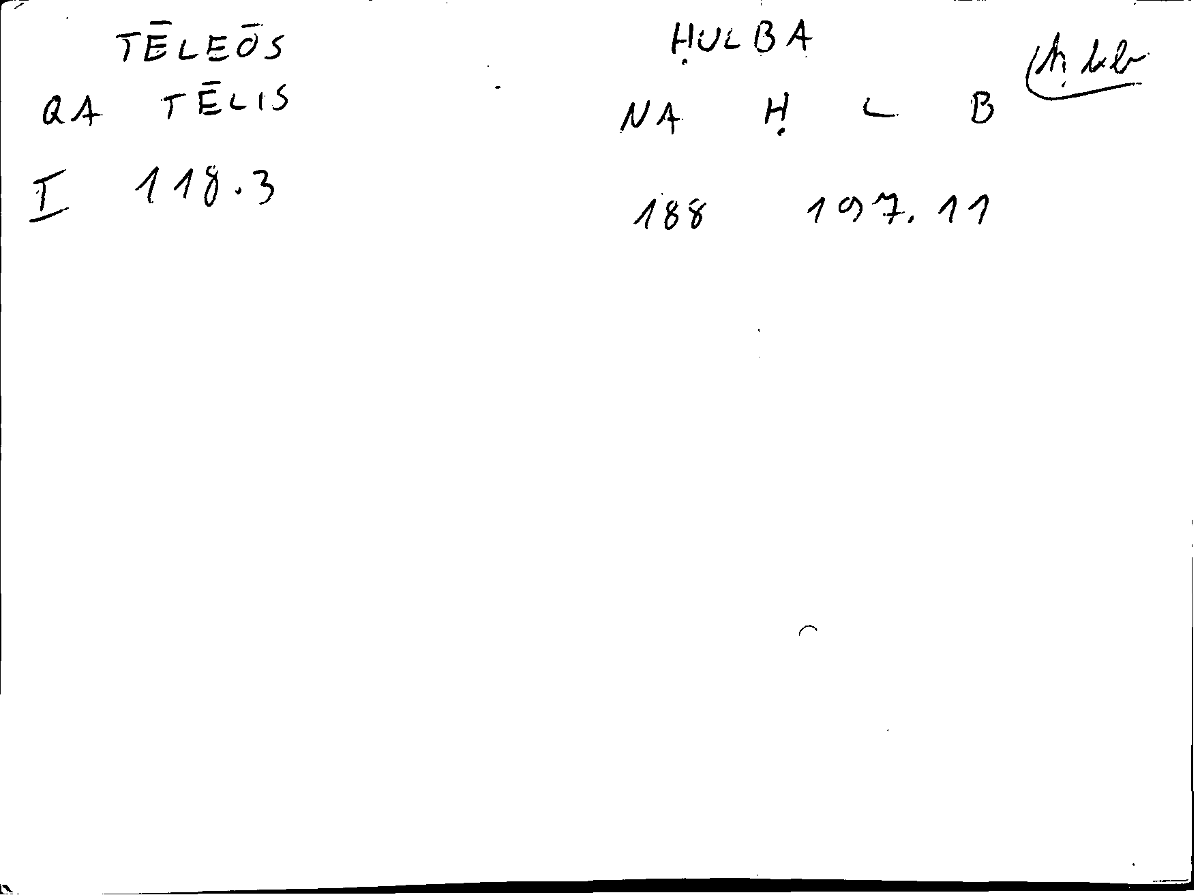 TĒLEŌS ḤULBA
QA TĒLIS NA Ḥ L B
I 118.3 188 197.11